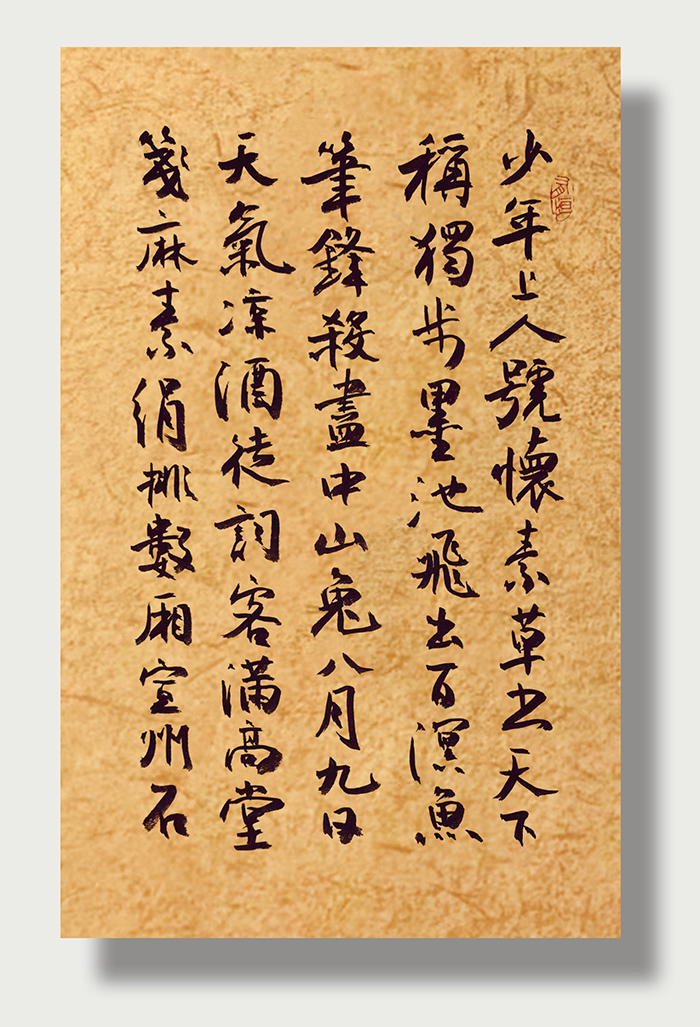 少年上人號懷素草书天下
稱獨步墨池飛出百溟魚
筆鋒殺盡中山兔八月九日
天氣凉酒徒詞客滿高堂
箋麻素絹排數厢宣州石